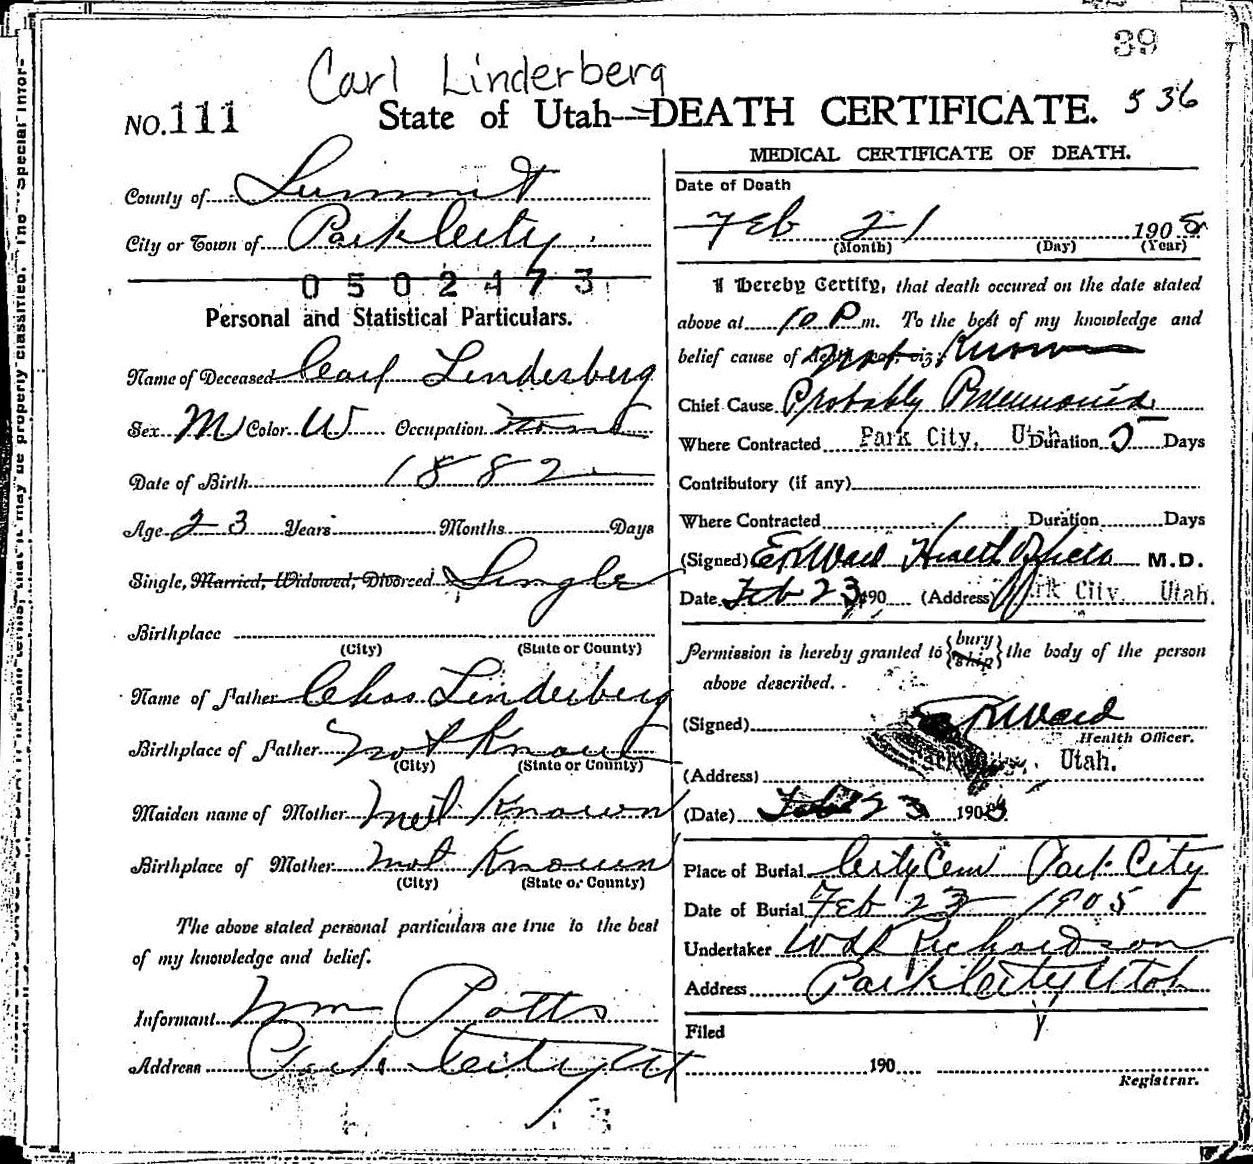 39
Carl Linderberg
NO. 111 State of Utah—DEATH CERTIFICATE. 536
County of Summit
City or Town of Park City
0502473
Personal and Statistical Particulars.
Name of Deceased Carl Linderberg
Sex M Color W Occupation
Date of Birth 1882
Age 23 Years Months Days
Single, Married, Widowed, Divorced Single
Birthplace
(City) (State or County)
Name of Father Chas Linderberg
Birthplace of Father Not Known
(City) (State or County)
Maiden name of Mother Not Known
Birthplace of Mother Not Known
(City) (State or County)
The above stated personal particulars are true to the best
of my knowledge and belief.
Informant Wm Potts
Address Park City Ut
MEDICAL CERTIFICATE OF DEATH.
Date of Death
Feb 21 1905
(Month) (Day) (Year)
I Hereby Certify, that death occured on the date stated
above at 10 P m. To the best of my knowledge and
belief cause of death was, viz; Not Known
Chief Cause Probably Pneumonia
Where Contracted Park City, Utah Duration 5 Days
Contributory (if any)
Where Contracted Duration Days
(Signed) E R Ward Health Officer M.D.
Date Feb 23 190 (Address) Park City, Utah.
Permission is hereby granted to {bury ship} the body of the person
above described.
(Signed) E R Ward
Health Officer.
(Address) Park City, Utah.
(Date) Feb 23 1905
Place of Burial City Cem Park City
Date of Burial Feb 23 1905
Undertaker Richardson
Address Park City Utah
Filed
190
Registrar.